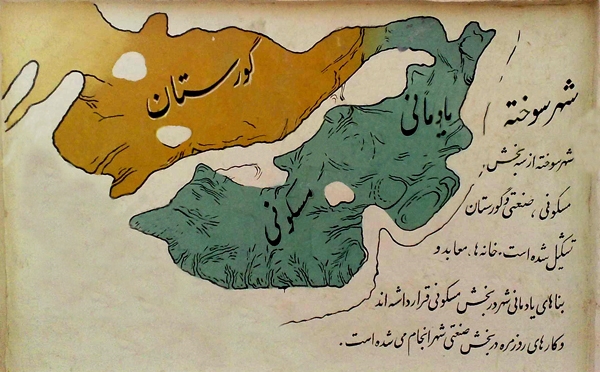 گورستان
یادمانی
مسکونی
شهر سوخته
شهر سوخته از سه بخش
مسکونی، صنعتی و گورستان
تشکیل شده است. خانه ها، معابد و
بنا های یادمانی شهر در بخش مسکونی قرار داشته اند
و کار های روزمره در بخش صنعتی شهر انجام می شده است.